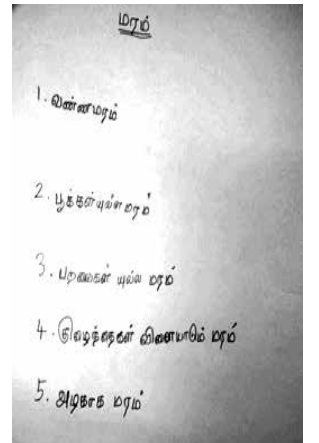 மரம்
1. வண்ணமரம்
2. பூக்கள்யுள்ள மரம்
3. பறவைகள் யுல்ல மரம்
4. குழந்தைகள் வினையாடும் மரம்
5. அழகாக மரம்